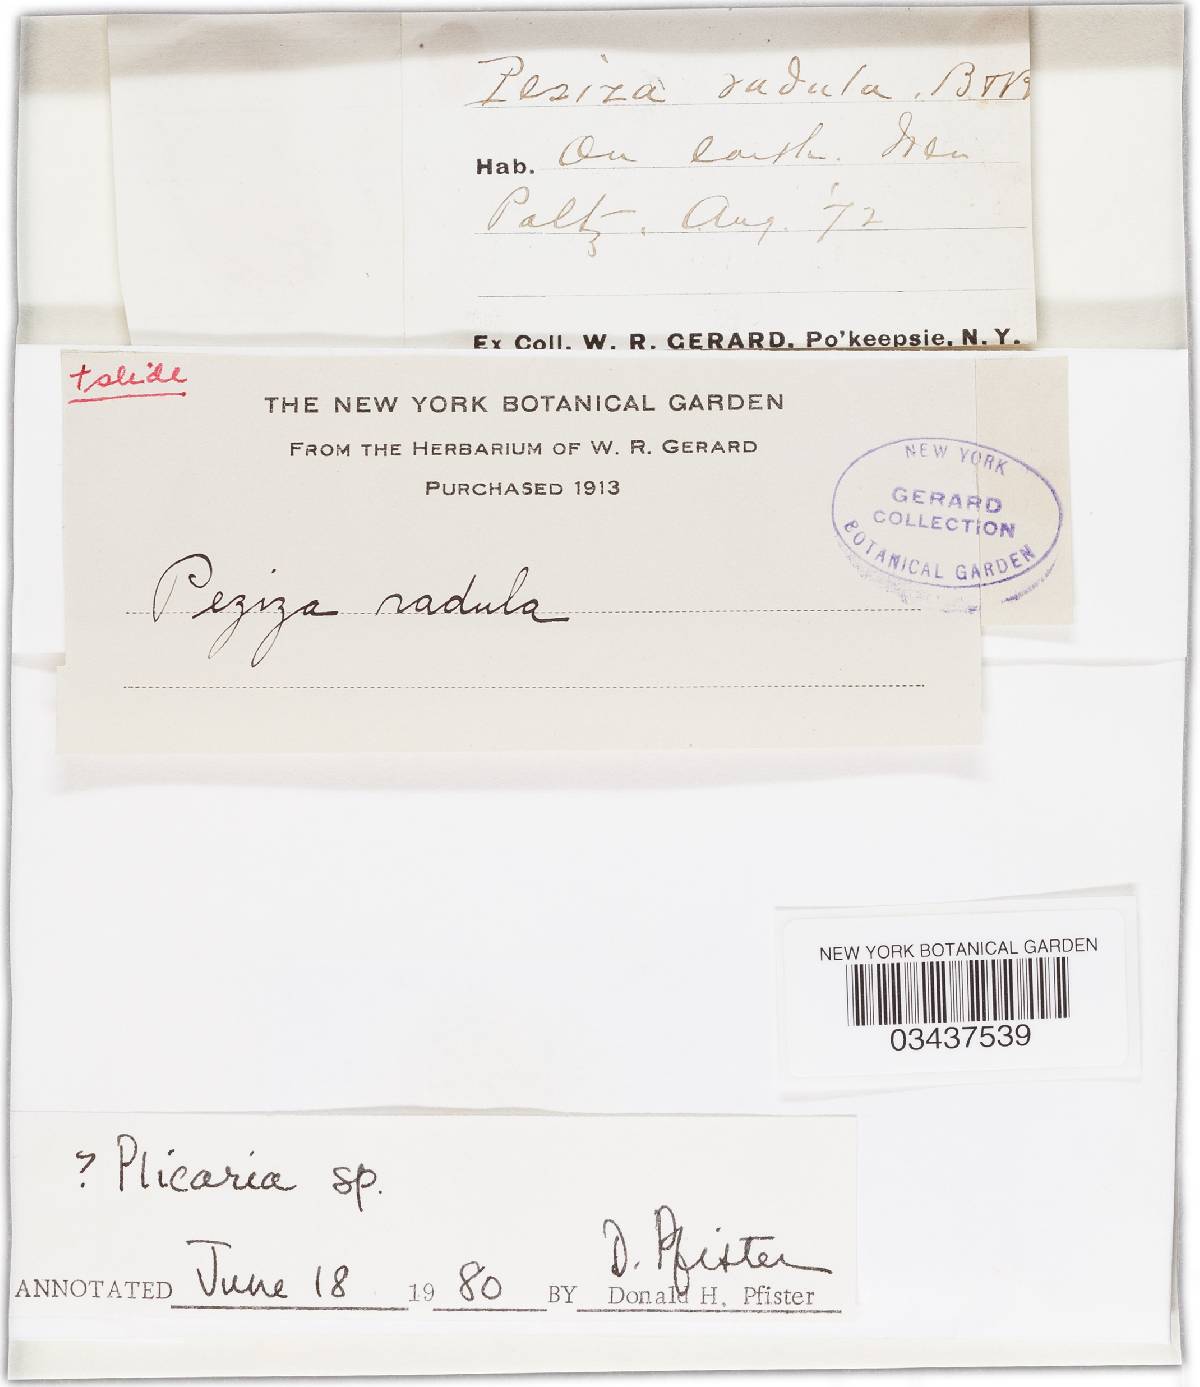 Peziza radula. B & Br
Hab. On earth. New
Paltz. Aug. '72
Ex Coll. W. R. GERARD, Po'keepsie, N. Y.
+ slide
THE NEW YORK BOTANICAL GARDEN
FROM THE HERBARIUM OF W. R. GERARD
PURCHASED 1913
NEW YORK
GERARD
COLLECTION
BOTANICAL GARDEN
Peziza radula
NEW YORK BOTANICAL GARDEN
03437539
? Plicaria sp.
D. Pfister
ANNOTATED June 18 1980 BY Donald H. Pfister